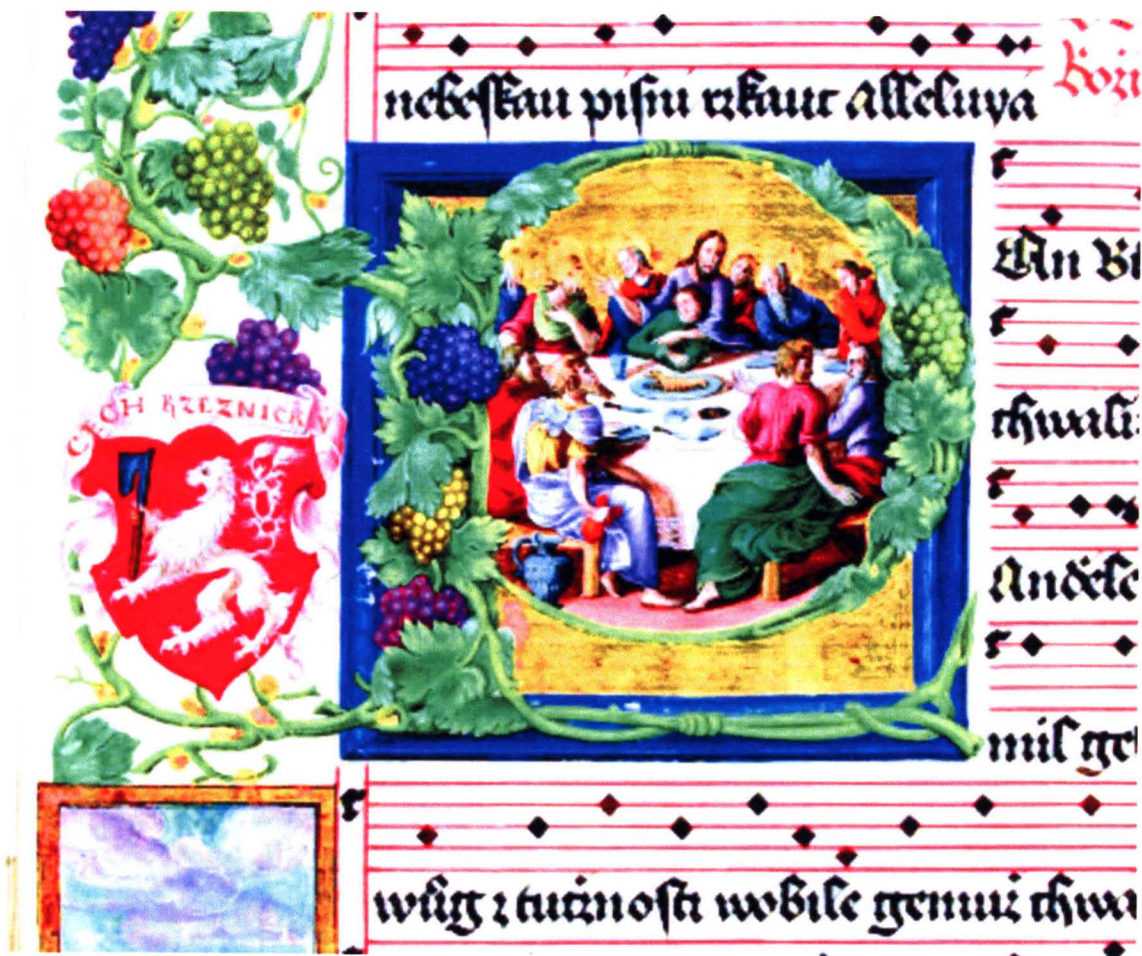 nebeskau pisni rzkauc Alleluya
Bozi
CECH RZEZNICKY
An
chwali:
Andele
mis ge
wssig z tucznosti wobile gemuz chwa